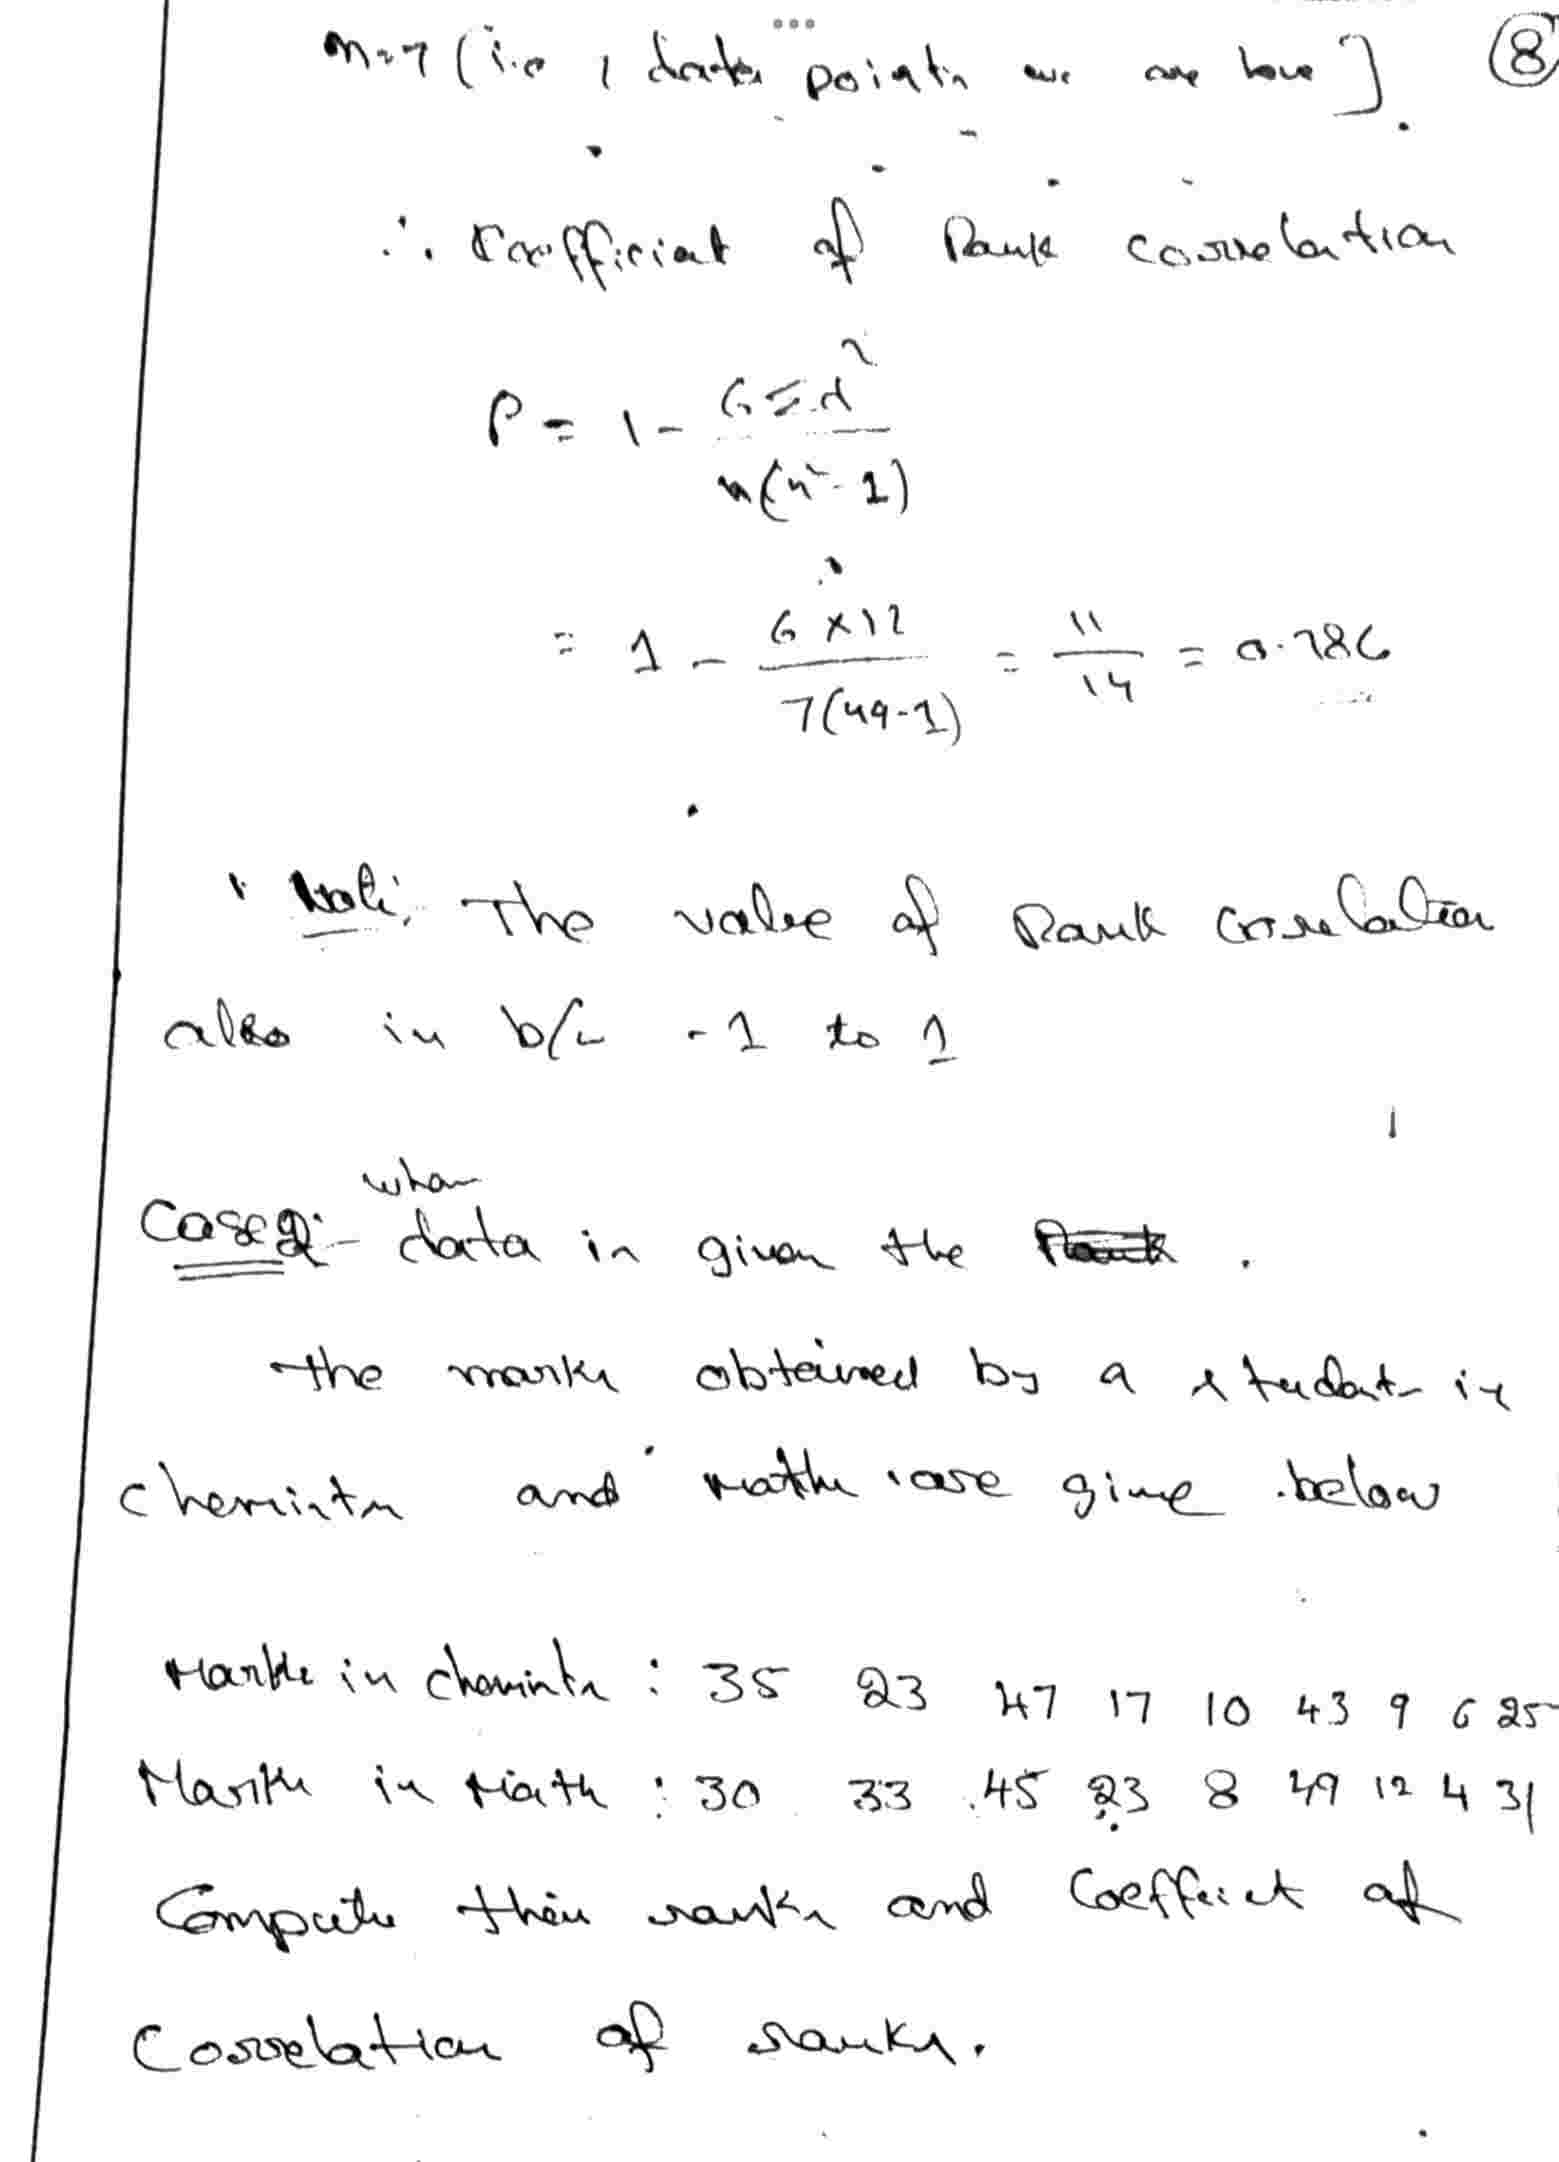 n=7 (i.e 7 data points we are have]. 8
∴ Coefficient of Rank correlation
ρ = 1 - 6Σd² / n(n²-1)
= 1 - 6×12 / 7(49-1) = 11/14 = 0.786
Note: The value of Rank correlation
also in b/w -1 to 1
Case 2:- when data is given the
the marks obtained by a student in
chemistry and maths are give below
Marks in chemistry : 35 23 47 17 10 43 9 6 25
Marks in Math : 30 33 45 23 8 49 12 4 31
Compute their ranks and Coefficient of
Correlation of ranks.